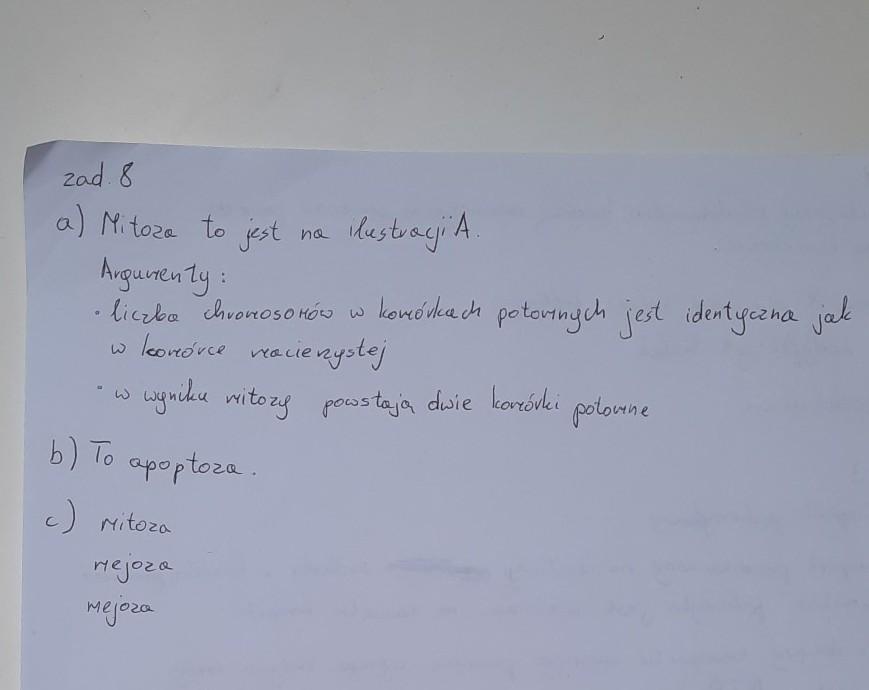 zad. 8
a) Mitoza to jest na ilustracji A.
Argumenty:
• liczba chromosomów w komórkach potomnych jest identyczna jak
w komórce macierzystej
• w wyniku mitozy powstają dwie komórki potomne
b) To apoptoza.
c) mitoza
mejoza
mejoza